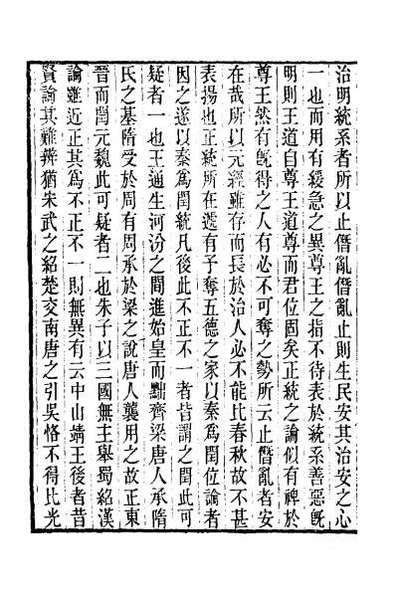 治明統系者所以止僭亂僭亂止則生民安其治安之心
一也而用有緩急之異尊王之指不待表於統系善惡旣
明則王道自尊王道尊而君位固矣正統之論似有裨於
尊王然有旣得之人有必不可奪之勢所云止僭亂者安
在哉所以元經雖存而長於治人必不能比春秋故不甚
表揚也正統所在遞有予奪五德之家以秦爲閏位論者
因之遂以秦爲閏統凡後此不正不一者皆謂之閏此可
疑者一也王通生河汾之間進始皇而黜齊梁唐人承隋
氏之基隋受於周有周承於梁之說唐人襲用之故正東
晉而閏元魏此可疑者二也朱子以三國無主舉蜀紹漢
論雖近正其爲不正不一則無異有云中山靖王後者昔
賢論其難辨猶宋武之紹楚交南唐之引吳恪不得比光